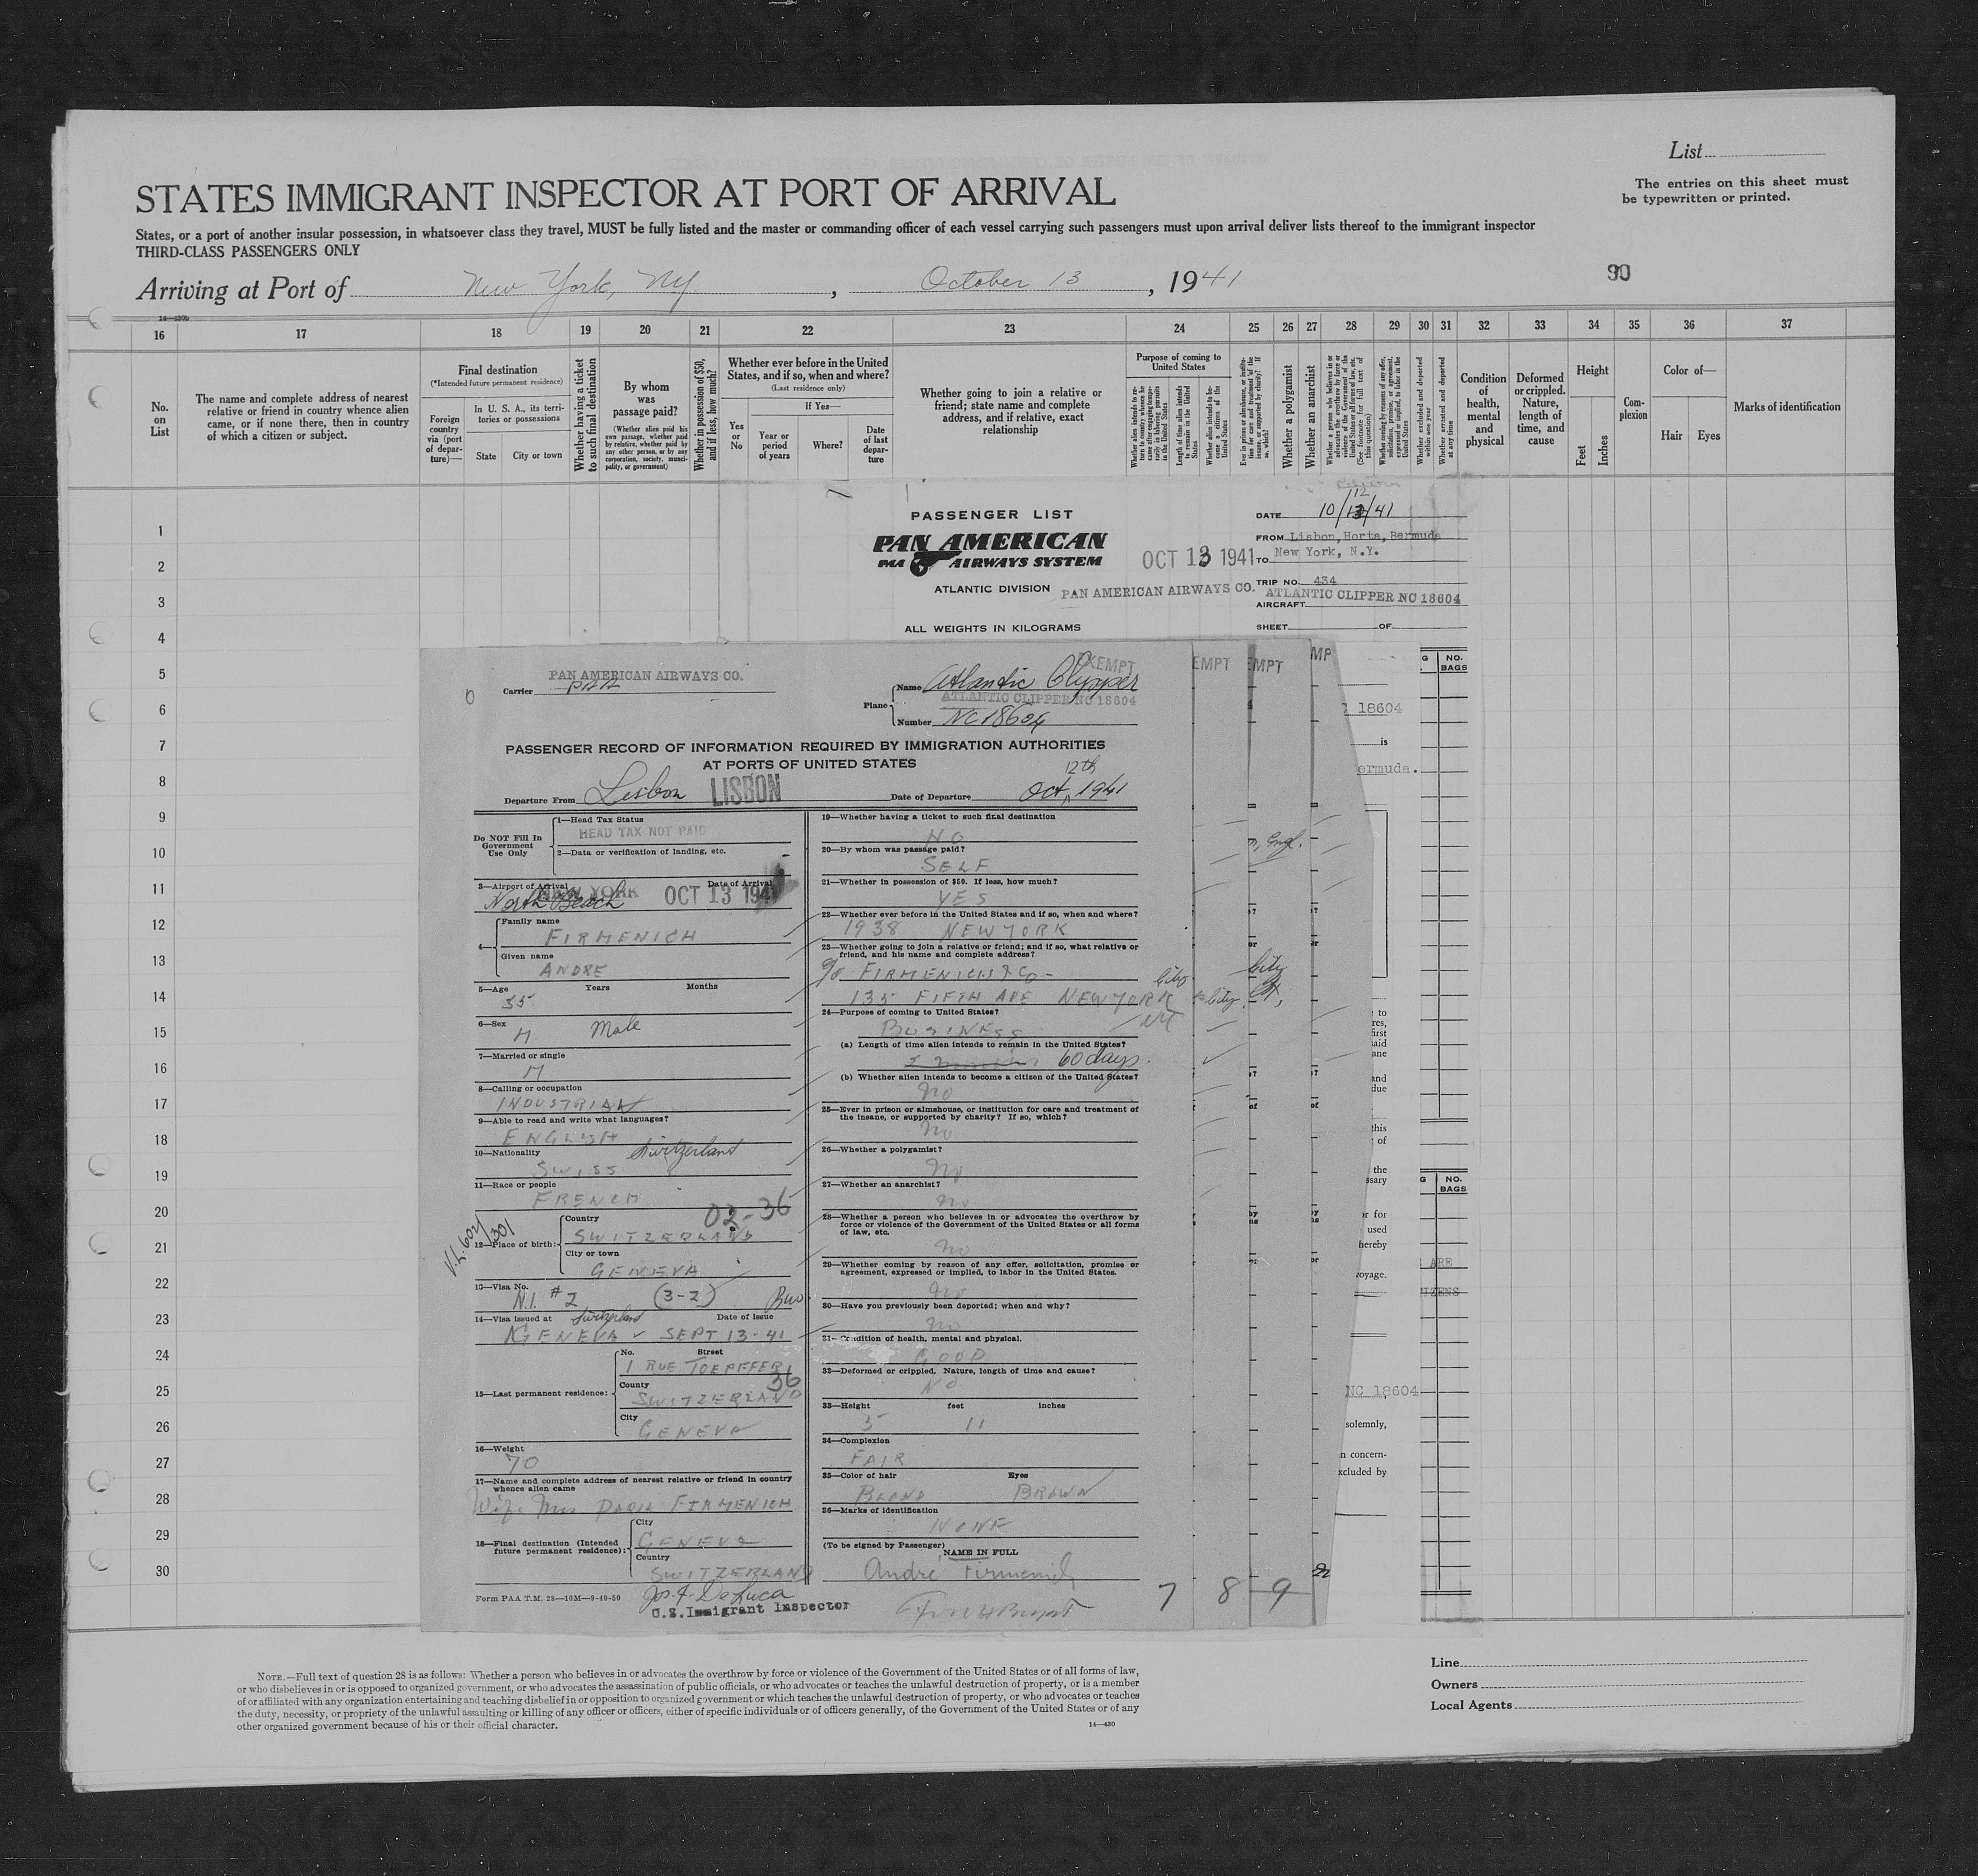 List
STATES IMMIGRANT INSPECTOR AT PORT OF ARRIVAL
The entries on this sheet must
be typewritten or printed.
States, or a port of another insular possession, in whatsoever class they travel, MUST be fully listed and the master or commanding officer of each vessel carrying such passengers must upon arrival deliver lists thereof to the immigrant inspector
THIRD-CLASS PASSENGERS ONLY
Arriving at Port of New York, NY, October 13, 1941
90
16 17 18 19 20 21 22 23 24 25 26 27 28 29 30 31 32 33 34 35 36 37
No. on List
The name and complete address of nearest relative or friend in country whence alien came, or if none there, then in country of which a citizen or subject.
Final destination
(*Intended future permanent residence)
Foreign country via (port of departure)—
In U. S. A., its territories or possessions
State
City or town
Whether having a ticket to such final destination
By whom was passage paid?
(Whether alien paid his own passage, whether paid by relative, whether paid by any other person, or by any corporation, society, municipality, or government)
Whether in possession of $50, and if less, how much?
Whether ever before in the United States, and if so, when and where?
(Last residence only)
If Yes—
Yes or No
Year or period of years
Where?
Date of last departure
Whether going to join a relative or friend; state name and complete address, and if relative, exact relationship
Purpose of coming to United States
Whether a polygamist
Whether an anarchist
Condition of health, mental and physical
Deformed or crippled. Nature, length of time, and cause
Height
Feet
Inches
Complexion
Color of—
Hair
Eyes
Marks of identification
1
2
3
4
5
6
7
8
9
10
11
12
13
14
15
16
17
18
19
20
21
22
23
24
25
26
27
28
29
30
PASSENGER LIST
PAN AMERICAN
PAA AIRWAYS SYSTEM
ATLANTIC DIVISION
ALL WEIGHTS IN KILOGRAMS
OCT 13 1941
PAN AMERICAN AIRWAYS CO.
DATE 10/12/41
FROM Lisbon, Horta, Bermuda
TO New York, N.Y.
TRIP NO. 434
AIRCRAFT ATLANTIC CLIPPER NC 18604
SHEET OF
PAN AMERICAN AIRWAYS CO.
Carrier PAA
EXEMPT
Plane
Name Atlantic Clipper
ATLANTIC CLIPPER NC 18604
Number NC18604
PASSENGER RECORD OF INFORMATION REQUIRED BY IMMIGRATION AUTHORITIES
AT PORTS OF UNITED STATES
Departure From Lisbon LISBON
Date of Departure Oct, 12th 1941
Do NOT Fill In
Government
Use Only
1—Head Tax Status
HEAD TAX NOT PAID
2—Data or verification of landing, etc.
3—Airport of Arrival Date of Arrival
North Beach NEW YORK OCT 13 1941
4— Family name
FIRMENICH
Given name
ANDRE
5—Age Years Months
35
6—Sex
M Male
7—Married or single
M
8—Calling or occupation
INDUSTRIAN
9—Able to read and write what languages?
ENGLISH
10—Nationality Switzerland
SWISS
11—Race or people
FRENCH
02-36
V.L. 602/301
12—Place of birth:
Country
SWITZERLAND
City or town
GENEVA
13—Visa No.
N.I. #2 (3-2)
14—Visa issued at Switzerland Date of issue
GENEVA SEPT 13-41
15—Last permanent residence:
No. Street
1 RUE TOEPFFER
36
County
SWITZERLAND
City
GENEVA
16—Weight
70
17—Name and complete address of nearest relative or friend in country
whence alien came
Wife Mrs DARIA FIRMENICH
18—Final destination (Intended
future permanent residence):
City
GENEVA
Country
SWITZERLAND
Form PAA T.M. 28—10M—9-40-50
Jos. F. DeLuca
U.S. Immigrant Inspector
19—Whether having a ticket to such final destination
NO
20—By whom was passage paid?
SELF
21—Whether in possession of $50. If less, how much?
YES
22—Whether ever before in the United States and if so, when and where?
1938 NEW YORK
23—Whether going to join a relative or friend; and if so, what relative or
friend, and his name and complete address?
c/o FIRMENICH & CO-
135 FIFTH AVE NEW YORK
City
NY
24—Purpose of coming to United States?
BUSINESS
(a) Length of time alien intends to remain in the United States?
60 days.
(b) Whether alien intends to become a citizen of the United States?
No
25—Ever in prison or almshouse, or institution for care and treatment of
the insane, or supported by charity? If so, which?
No
26—Whether a polygamist?
No
27—Whether an anarchist?
No
28—Whether a person who believes in or advocates the overthrow by
force or violence of the Government of the United States or all forms
of law, etc.
No
29—Whether coming by reason of any offer, solicitation, promise or
agreement, expressed or implied, to labor in the United States.
No
30—Have you previously been deported; when and why?
No
31—Condition of health, mental and physical.
GOOD
32—Deformed or crippled. Nature, length of time and cause?
NO
33—Height feet inches
5 11
34—Complexion
FAIR
35—Color of hair Eyes
BLOND BROWN
36—Marks of identification
NONE
(To be signed by Passenger)
NAME IN FULL
Andre Firmenich
7 8 9
EMPT
EMPT
MP
18604
is
ermuda.
G NO. BAGS
NC 18604
solemnly,
n concern-
xcluded by
NOTE.—Full text of question 28 is as follows: Whether a person who believes in or advocates the overthrow by force or violence of the Government of the United States or of all forms of law,
or who disbelieves in or is opposed to organized government, or who advocates the assassination of public officials, or who advocates or teaches the unlawful destruction of property, or is a member
of or affiliated with any organization entertaining and teaching disbelief in or opposition to organized government or which teaches the unlawful destruction of property, or who advocates or teaches
the duty, necessity, or propriety of the unlawful assaulting or killing of any officer or officers, either of specific individuals or of officers generally, of the Government of the United States or of any
other organized government because of his or their official character.
14—430
Line
Owners
Local Agents